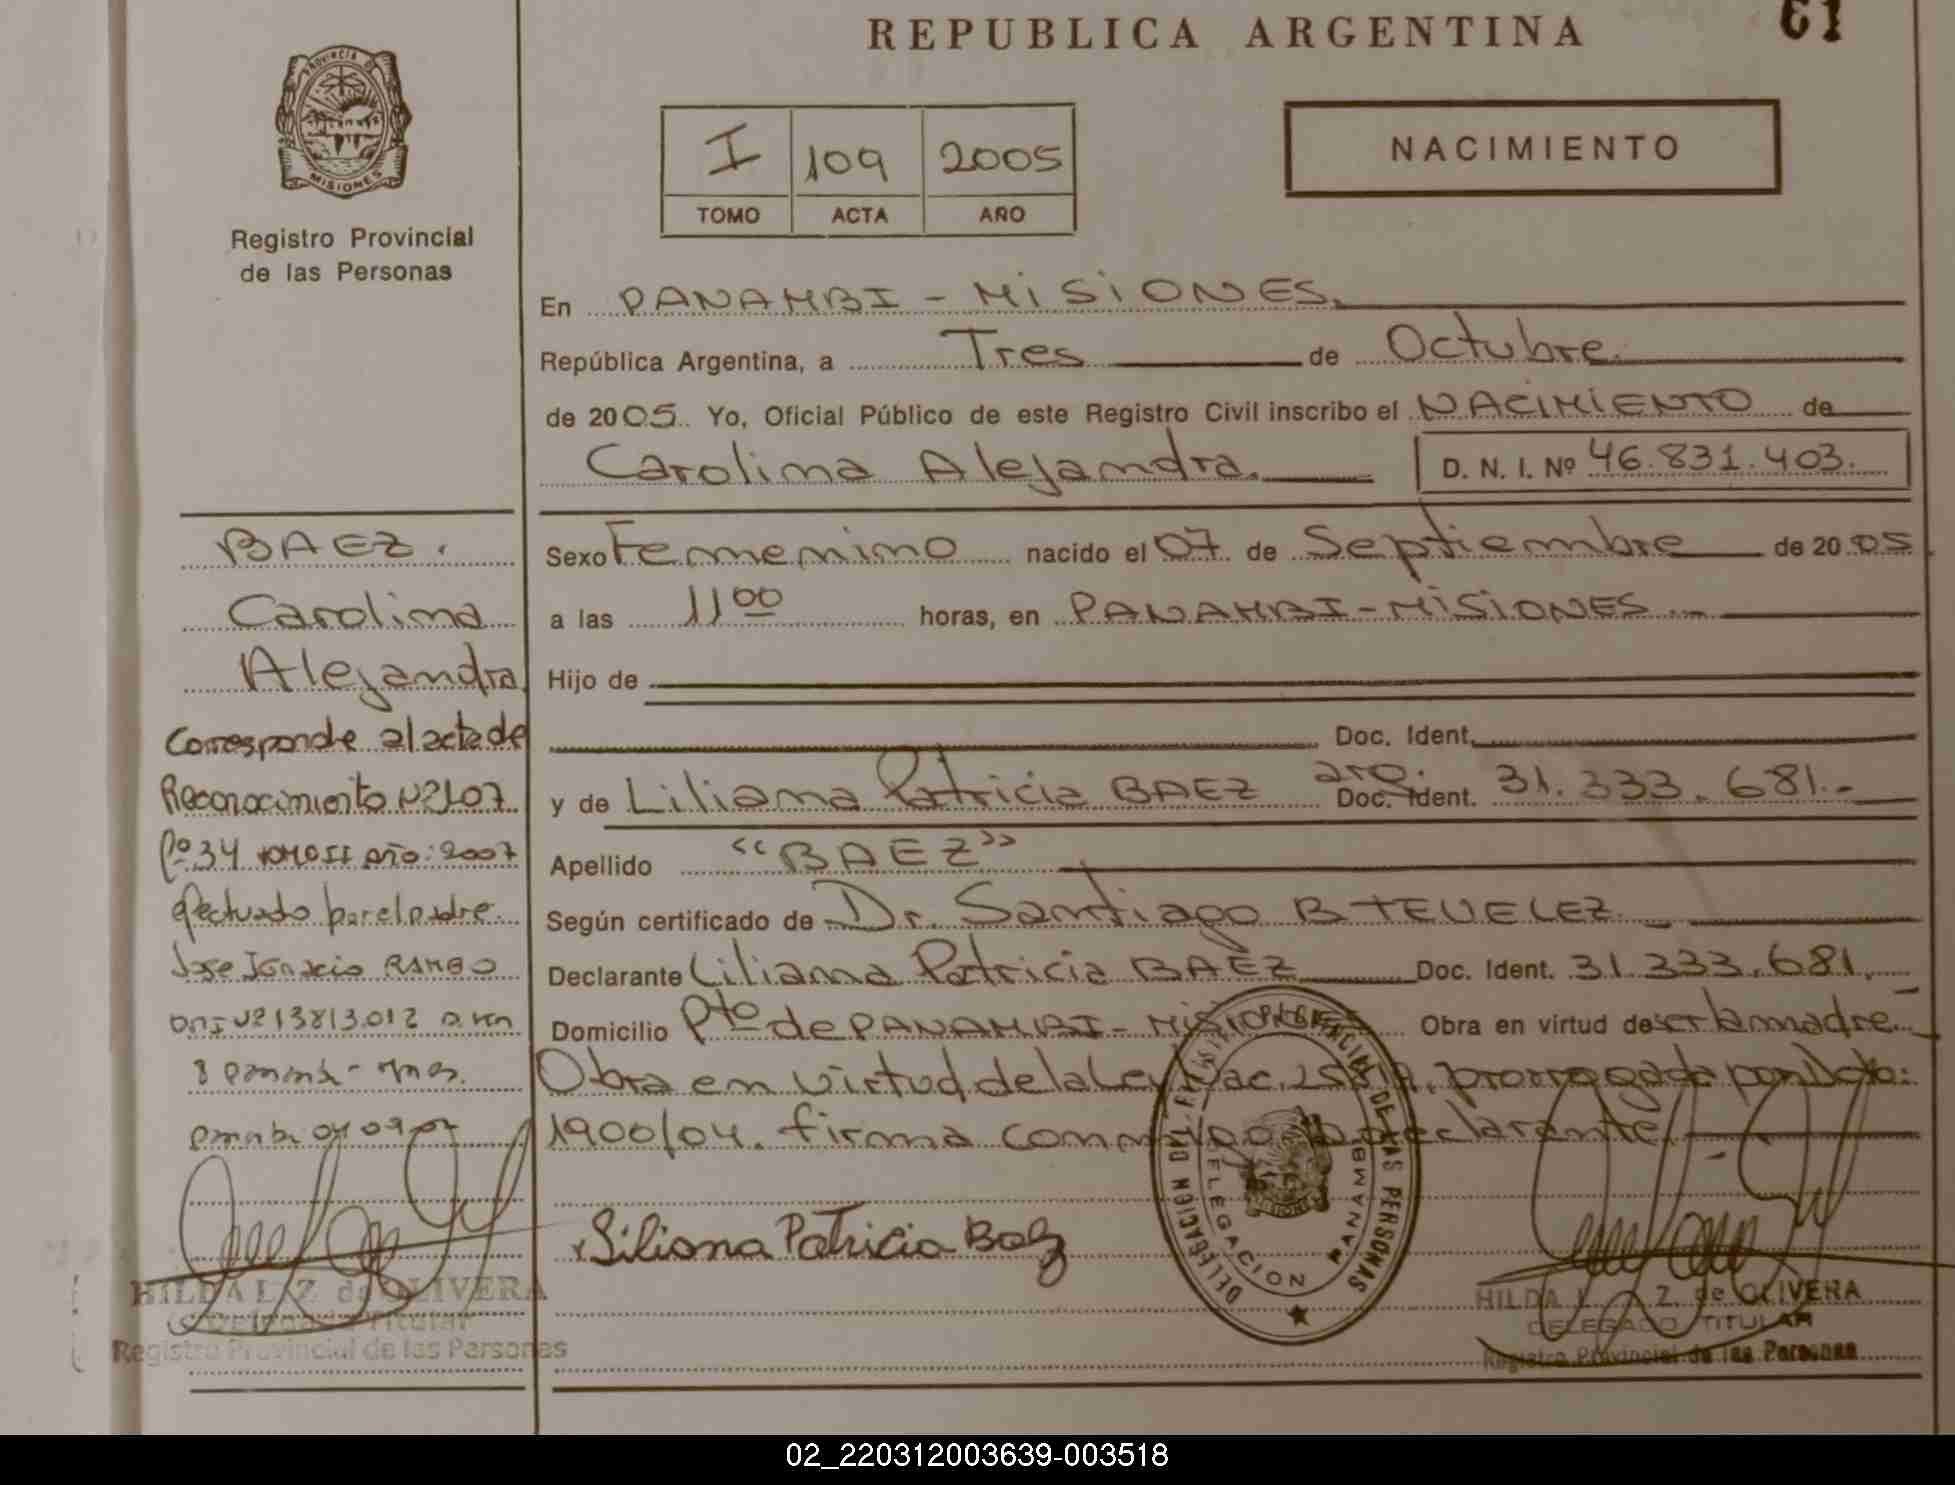 REPUBLICA ARGENTINA
61
PROVINCIA D
MISIONES
Registro Provincial
de las Personas
I 109 2005
TOMO ACTA AÑO
NACIMIENTO
En PANAMBI - MISIONES.
República Argentina, a Tres de Octubre.
de 2005. Yo, Oficial Público de este Registro Civil inscribo el NACIMIENTO de
Carolina Alejandra. D. N. I. Nº 46.831.403.
BAEZ.
Carolina
Alejandra
Corresponde al acta de
Reconocimiento Nº107
Fº34 tomo II año: 2007
efectuado por el padre
Jose Ignacio RAMBO
DNI Nº 13813.012
Sexo Femenino nacido el 07 de Septiembre de 2005
a las 11 00 horas, en PANAMBI - MISIONES
Hijo de
Doc. Ident.
y de Liliana Patricia BAEZ arg. Doc. Ident. 31.333.681.-
Apellido "BAEZ"
Según certificado de Dr. Santiago
Declarante Liliana Patricia BAEZ Doc. Ident. 31.333.681.
Domicilio Pto de PANAMBI - MISIONES Obra en virtud de ser la madre.
Obra en virtud de la Ley Nac. prorrogada por Dcto:
1900/04. firma conmigo la declarante.
Liliana Patricia Baez
DELEGACION DEL REGISTRO PROVINCIAL DE LAS PERSONAS
DELEGACION PANAMBI
MISIONES
HILDA L. Z. de OLIVERA
Delegado Titular
Registro Provincial de las Personas
HILDA L. Z. de OLIVERA
DELEGADO TITULAR
Registro Provincial de las Personas
02_220312003639-003518